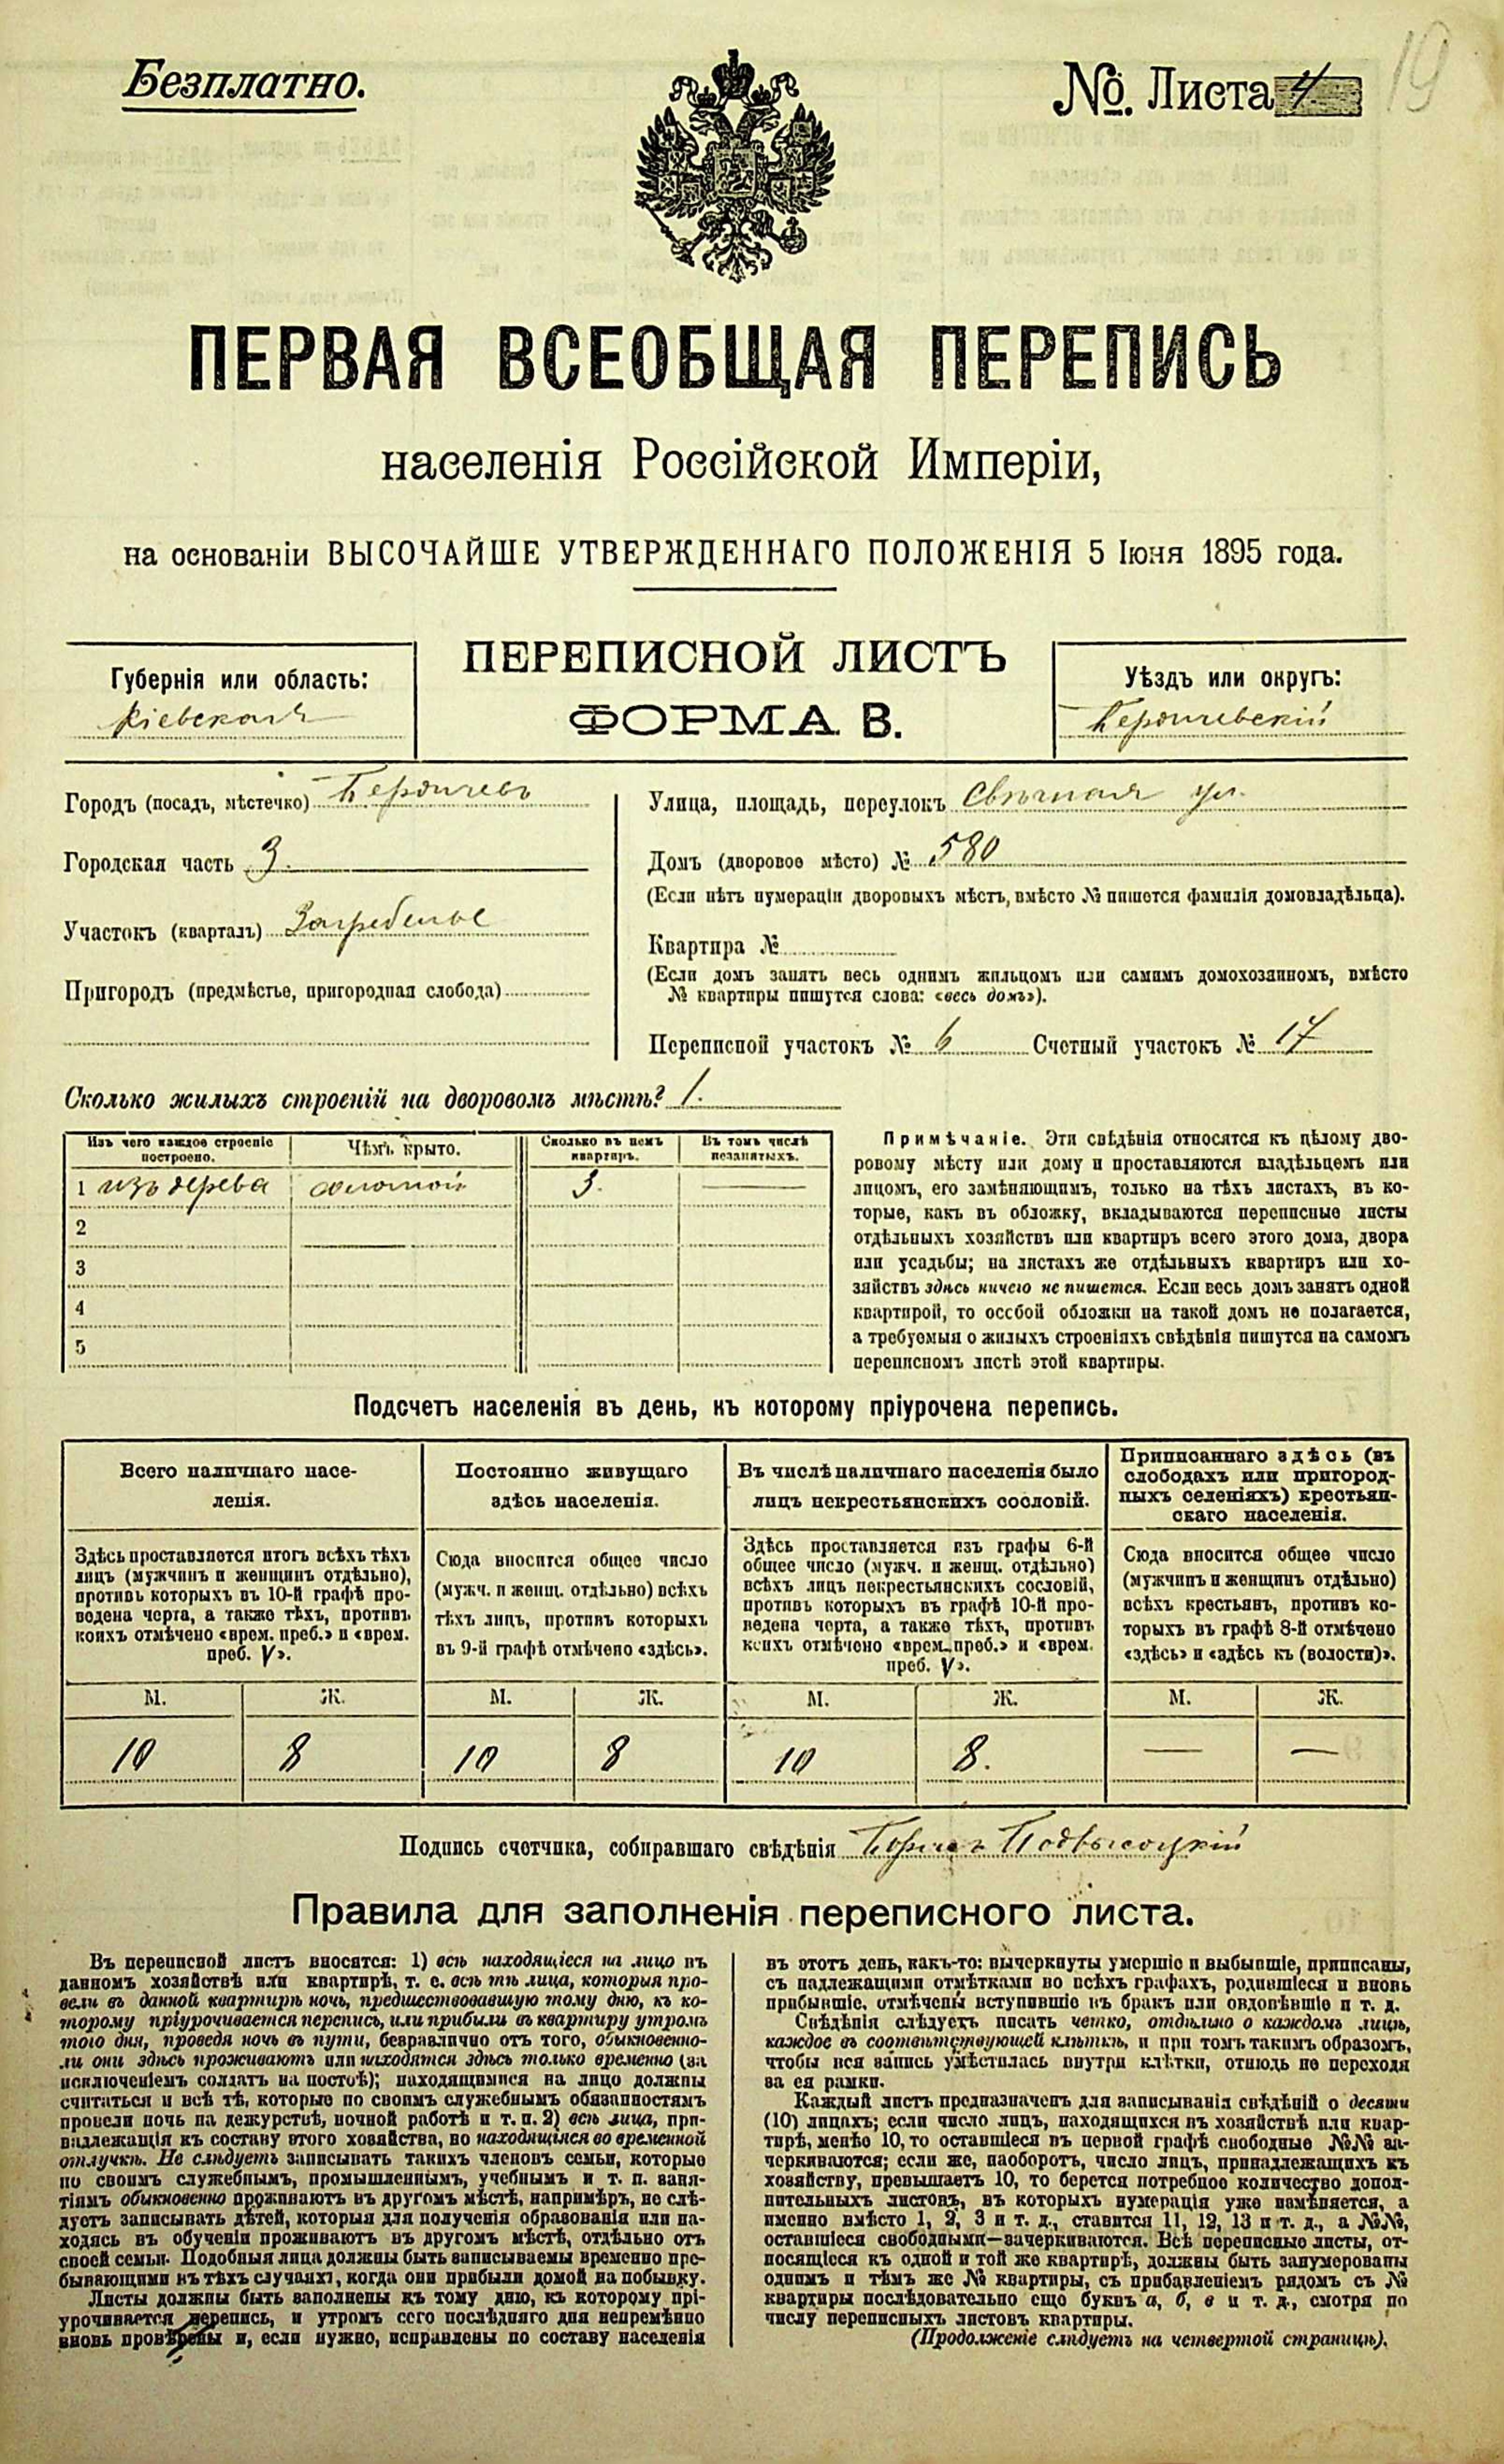 Безплатно.
№ Листа 4
19
ПЕРВАЯ ВСЕОБЩАЯ ПЕРЕПИСЬ
населенія Россійской Имперіи,
на основаніи ВЫСОЧАЙШЕ УТВЕРЖДЕННАГО ПОЛОЖЕНІЯ 5 Іюня 1895 года.
ПЕРЕПИСНОЙ ЛИСТЪ
ФОРМА В.
Губернія или область:
Кіевская
Уѣздъ или округъ:
Бердичевскій
Городъ (посадъ, мѣстечко) Бердичевъ
Городская часть 3.
Участокъ (кварталъ) Загребелье
Пригородъ (предмѣстье, пригородная слобода)
Улица, площадь, переулокъ Свѣчная ул.
Домъ (дворовое мѣсто) № 580
(Если нѣтъ нумераціи дворовыхъ мѣстъ, вмѣсто № пишется фамилія домовладѣльца).
Квартира №
(Если домъ занятъ весь однимъ жильцомъ или самимъ домохозяиномъ, вмѣсто
№ квартиры пишутся слова: «весь домъ»).
Переписной участокъ № 6 Счетный участокъ № 17
Сколько жилыхъ строеній на дворовомъ мѣстѣ? 1.
Изъ чего каждое строеніе построено. Чѣмъ крыто. Сколько въ немъ квартиръ. Въ томъ числѣ незанятыхъ.
1 изъ дерева соломой 3. —
2
3
4
5
Примѣчаніе. Эти свѣдѣнія относятся къ цѣлому дво-
ровому мѣсту или дому и проставляются владѣльцемъ или
лицомъ, его замѣняющимъ, только на тѣхъ листахъ, въ ко-
торые, какъ въ обложку, вкладываются переписные листы
отдѣльныхъ хозяйствъ или квартиръ всего этого дома, двора
или усадьбы; на листахъ же отдѣльныхъ квартиръ или хо-
зяйствъ здѣсь ничего не пишется. Если весь домъ занятъ одной
квартирой, то особой обложки на такой домъ не полагается,
а требуемыя о жилыхъ строеніяхъ свѣдѣнія пишутся на самомъ
переписномъ листѣ этой квартиры.
Подсчетъ населенія въ день, къ которому пріурочена перепись.
Всего наличнаго насе-
ленія.
Здѣсь проставляется итогъ всѣхъ тѣхъ
лицъ (мужчинъ и женщинъ отдѣльно),
противъ которыхъ въ 10-й графѣ про-
ведена черта, а также тѣхъ, противъ
коихъ отмѣчено «врем. преб.» и «врем.
преб. V».
Постоянно живущаго
здѣсь населенія.
Сюда вносится общее число
(мужч. и женщ. отдѣльно) всѣхъ
тѣхъ лицъ, противъ которыхъ
въ 9-й графѣ отмѣчено «здѣсь».
Въ числѣ наличнаго населенія было
лицъ некрестьянскихъ сословій.
Здѣсь проставляется изъ графы 6-й
общее число (мужч. и женщ. отдѣльно)
всѣхъ лицъ некрестьянскихъ сословій,
противъ которыхъ въ графѣ 10-й про-
ведена черта, а также тѣхъ, противъ
коихъ отмѣчено «врем. преб.» и «врем.
преб. V».
Приписаннаго здѣсь (въ
слободахъ или пригород-
ныхъ селеніяхъ) крестьян-
скаго населенія.
Сюда вносится общее число
(мужчинъ и женщинъ отдѣльно)
всѣхъ крестьянъ, противъ ко-
торыхъ въ графѣ 8-й отмѣчено
«здѣсь» и «здѣсь къ (волости)».
М. Ж. М. Ж. М. Ж. М. Ж.
10 8 10 8 10 8. — —
Подпись счетчика, собиравшаго свѣдѣнія Борисъ Подвысоцкій
Правила для заполненія переписного листа.
Въ переписной листъ вносятся: 1) всѣ находящіеся на лицо въ
данномъ хозяйствѣ или квартирѣ, т. е. всѣ тѣ лица, которыя про-
вели въ данной квартирѣ ночь, предшествовавшую тому дню, къ ко-
торому пріурочивается перепись, или прибыли въ квартиру утромъ
того дня, проведя ночь въ пути, безразлично отъ того, обыкновенно-
ли они здѣсь проживаютъ или находятся здѣсь только временно (за
исключеніемъ солдатъ на постоѣ); находящимися на лицо должны
считаться и всѣ тѣ, которые по своимъ служебнымъ обязанностямъ
провели ночь на дежурствѣ, ночной работѣ и т. п. 2) всѣ лица, при-
надлежащія къ составу этого хозяйства, но находящіяся во временной
отлучкѣ. Не слѣдуетъ записывать такихъ членовъ семьи, которые
по своимъ служебнымъ, промышленнымъ, учебнымъ и т. п. заня-
тіямъ обыкновенно проживаютъ въ другомъ мѣстѣ, напримѣръ, не слѣ-
дуетъ записывать дѣтей, которыя для полученія образованія или на-
ходясь въ обученіи проживаютъ въ другомъ мѣстѣ, отдѣльно отъ
своей семьи. Подобныя лица должны быть записываемы временно пре-
бывающими въ тѣхъ случаяхъ, когда они прибыли домой на побывку.
Листы должны быть заполнены къ тому дню, къ которому прі-
урочивается перепись, и утромъ сего послѣдняго дня непремѣнно
вновь провѣрены и, если нужно, исправлены по составу населенія
въ этотъ день, какъ-то: вычеркнуты умершіе и выбывшіе, приписаны,
съ надлежащими отмѣтками во всѣхъ графахъ, родившіеся и вновь
прибывшіе, отмѣчены вступившіе въ бракъ или овдовѣвшіе и т. д.
Свѣдѣнія слѣдуетъ писать четко, отдѣльно о каждомъ лицѣ,
каждое въ соотвѣтствующей клѣткѣ, и при томъ такимъ образомъ,
чтобы вся запись умѣстилась внутри клѣтки, отнюдь не переходя
за ея рамки.
Каждый листъ предназначенъ для записыванія свѣдѣній о десяти
(10) лицахъ; если число лицъ, находящихся въ хозяйствѣ или квар-
тирѣ, менѣе 10, то оставшіеся въ первой графѣ свободные №№ за-
черкиваются; если же, наоборотъ, число лицъ, принадлежащихъ къ
хозяйству, превышаетъ 10, то берется потребное количество допол-
нительныхъ листовъ, въ которыхъ нумерація уже измѣняется, а
именно вмѣсто 1, 2, 3 и т. д., ставится 11, 12, 13 и т. д., а №№,
оставшіеся свободными—зачеркиваются. Всѣ переписные листы, от-
носящіеся къ одной и той же квартирѣ, должны быть занумерованы
однимъ и тѣмъ же № квартиры, съ прибавленіемъ рядомъ съ №
квартиры послѣдовательно еще буквъ а, б, в и т. д., смотря по
числу переписныхъ листовъ квартиры.
(Продолженіе слѣдуетъ на четвертой страницѣ).